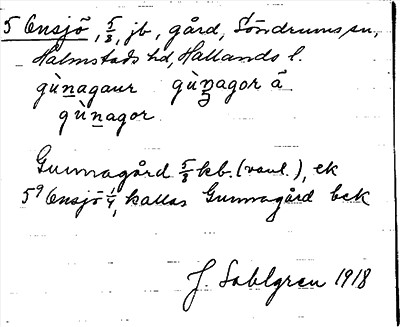 5 Ensjö, 5/8, jb, gård, Söndrums sn,
Halmstads hd, Hallands l.
gùnagaur gùnagor å
gùnagor
Gunnagård 5/8 kb. (vanl.), ek
5⁹ Ensjö 1/4, kallas Gunnagård bek
J. Sahlgren 1918